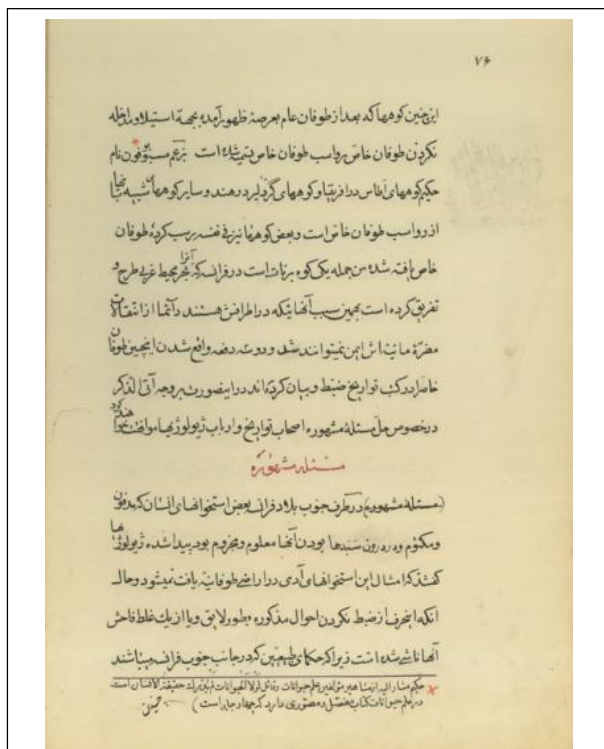 ۷۶
اینچنین کوهها که بعد از طوفان عام بعرصهٔ ظهور آمده بجهة استیلا و مداخله
نکردن طوفان خاص رواسب طوفان خاص شده است بزعم نام
حکیم کوههای اطاس در افریقا و کوههای در هند و سایر کوههای شبیه بآنها
از رواسب طوفان خاص است و بعض کوهها نیز فی نفسه برسب کردهٔ طوفان
خاص یافته شده من جمله یکی کوه است در فرانسه که آنرا بحر محیط غربی طرح و
تفریق کرده است بهمین سبب آنهاییکه در اطرافش هستند دائما از انتقالات
مضرهٔ مائیه اش ایمن نمیتوانند شد و دو سه دفعه واقع شدن اینچنین طوفان
خاص را در کتب تواریخ ضبط و بیان کرده اند در اینصورت بر وجه آتی الذکر
در خصوص حل مسئلهٔ مشهوره اصحاب تواریخ و ارباب ژیولوژیها موافقت
مسئله مشهوره
(مسئله مشهوره) در طرف جنوب بلاد فرانسه بعض استخوانهای انسان که مدفون
و مکتوم و در درون سدها بودن آنها معلوم و مجزوم بود پیدا شده ژیولوژیها
گفتند که امثال این استخوانهای آدمی در اراضی طوفانیه یافت نمیشود و حال
انکه اینحرف از ضبط نکردن احوال مذکوره بطور لایق و یا از یک غلط فاحش
آنها ناشی شده است زیرا که حکمای طبیعیین که در جانب جنوب فرانسه میباشند
حکیم مشار الیه از مشاهیر مؤلفین علم حیوانات است
در علم حیوانات کتاب مفصل و مصوری دارد که چهار جلد است)